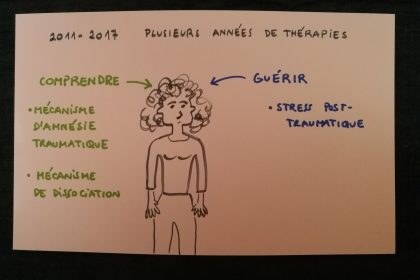 2011-2017 PLUSIEURS ANNÉES DE THÉRAPIES
COMPRENDRE
• MÉCANISME
D'AMNÉSIE
TRAUMATIQUE
• MÉCANISME
DE DISSOCIATION
GUÉRIR
• STRESS POST-
TRAUMATIQUE